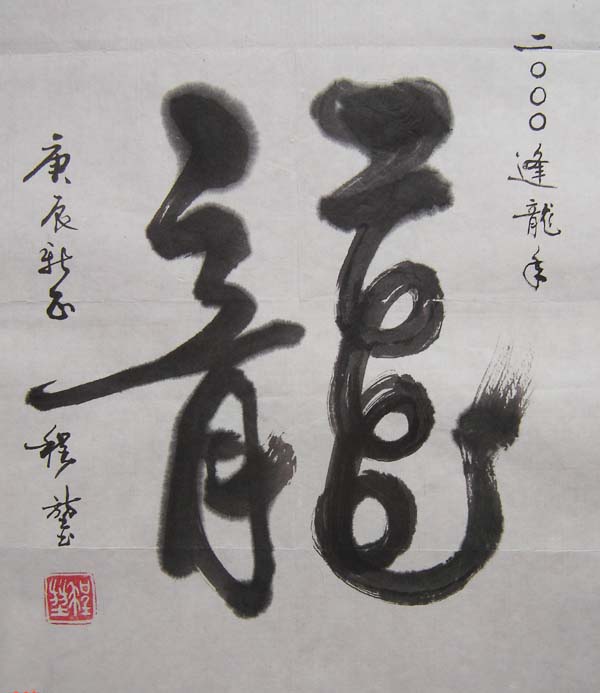 二〇〇〇逢龍年
龍
庚辰新正
程堃